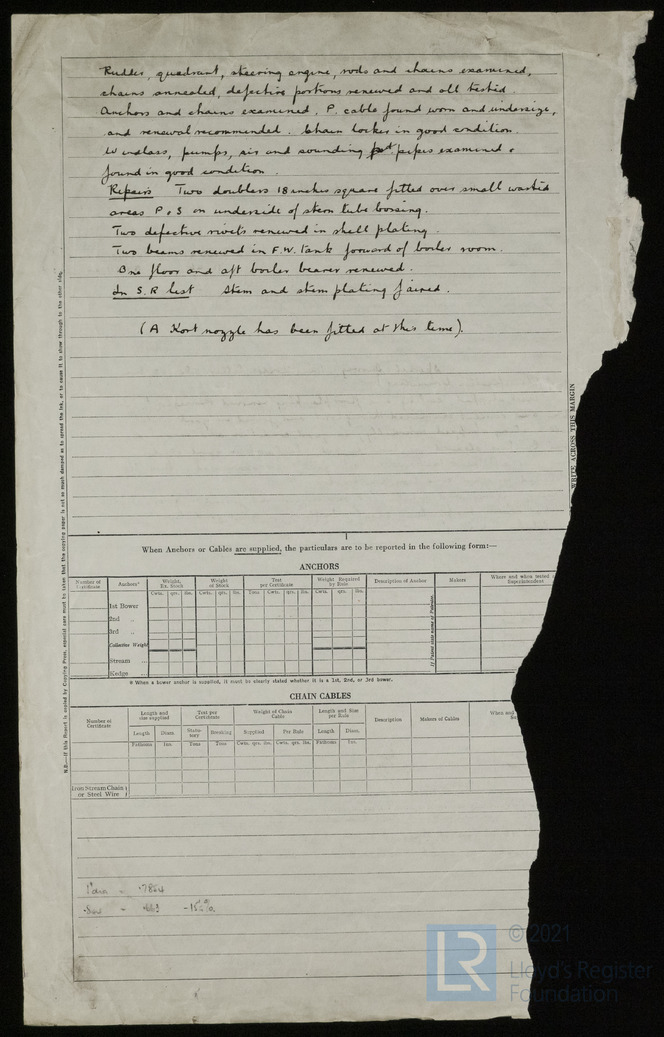 Rudder, quadrant, steering engine, rods and chains examined,
chains annealed, defective portions renewed and all tested
Anchors and chains examined. P. cable found worn and undersize,
and renewal recommended. Chain locker in good condition.
Windlass, pumps, air and sounding pipes examined &
found in good condition.
Repairs Two doublers 18 inches square fitted over small wasted
areas P & S on underside of stern tube bossing.
Two defective rivets renewed in shell plating.
Two beams renewed in F.W. tank forward of boiler room.
One floor and aft boiler bearer renewed.
In S.R list Stem and stem plating faired.
(A Kort nozzle has been fitted at this time).
N.B.—If this Report is copied by Copying Press, especial care must be taken that the copying paper is not so much damped as to spread the ink, or to cause it to show through to the other side.
WRITE ACROSS THIS MARGIN
When Anchors or Cables are supplied, the particulars are to be reported in the following form:—
ANCHORS
Number of Certificate
Anchors*
Weight, Ex. Stock
Weight of Stock
Test per Certificate
Weight Required by Rule
Description of Anchor
Makers
Where and when tested
Superintendent
Cwts. qrs. lbs. Cwts. qrs. lbs. Tons Cwts. qrs. lbs. Cwts. qrs. lbs.
1st Bower
2nd „
3rd „
Collective Weight
Stream „
Kedge
If Patent state name of Patentee.
* When a bower anchor is supplied, it must be clearly stated whether it is a 1st, 2nd, or 3rd bower.
CHAIN CABLES
Number of Certificate
Length and size supplied
Test per Certificate
Weight of Chain Cable
Length and Size per Rule
Description
Makers of Cables
When and
Length Diam. Statutory Breaking Supplied Per Rule Length Diam.
Fathoms Ins. Tons Tons Cwts. qrs. lbs. Cwts. qrs. lbs. Fathoms Ins.
Iron Stream Chain
or Steel Wire
© 2021
LR
Lloyd's Register
Foundation